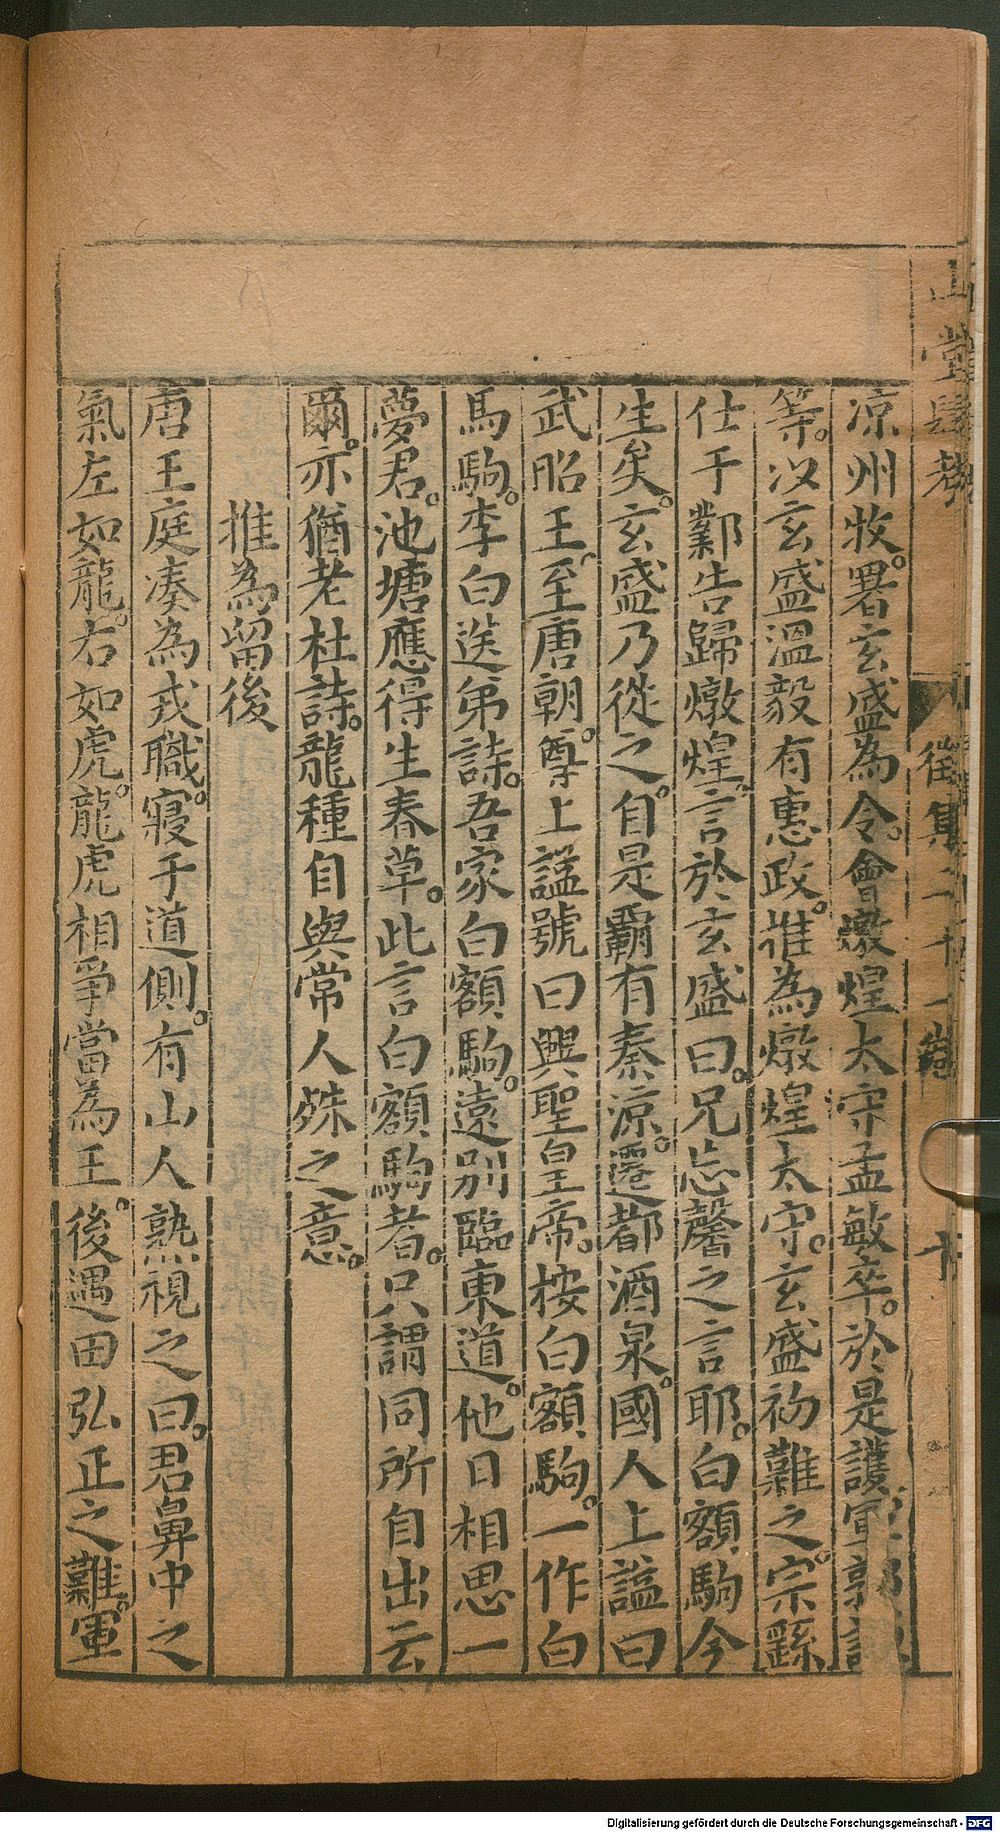 山堂肆考 徵集二十一卷 十
凉州牧。署玄盛為令。會燉煌太守孟敏卒。於是護軍郭謙
等。以玄盛溫毅有惠政。推為燉煌太守。玄盛初難之。宗繇
仕于鄴告歸燉煌。言於玄盛曰。兄忘馨之言耶。白額駒今
生矣。玄盛乃從之。自是霸有秦凉。遷都酒泉。國人上謚曰
武昭王。至唐朝。尊上謚號曰興聖皇帝。桉白額駒。一作白
馬駒。李白送弟詩。吾家白額駒。遠別臨東道。他日相思一
夢君。池塘應得生春草。此言白額駒者。只謂同所自出云
爾。亦猶老杜詩。龍種自與常人殊之意。
推為留後
唐王庭凑為戎職。寢于道側。有山人熟視之曰。君鼻中之
氣左如龍。右如虎。龍虎相爭當為王。後遇田弘正之難。軍
Digitalisierung gefördert durch die Deutsche Forschungsgemeinschaft - DFG